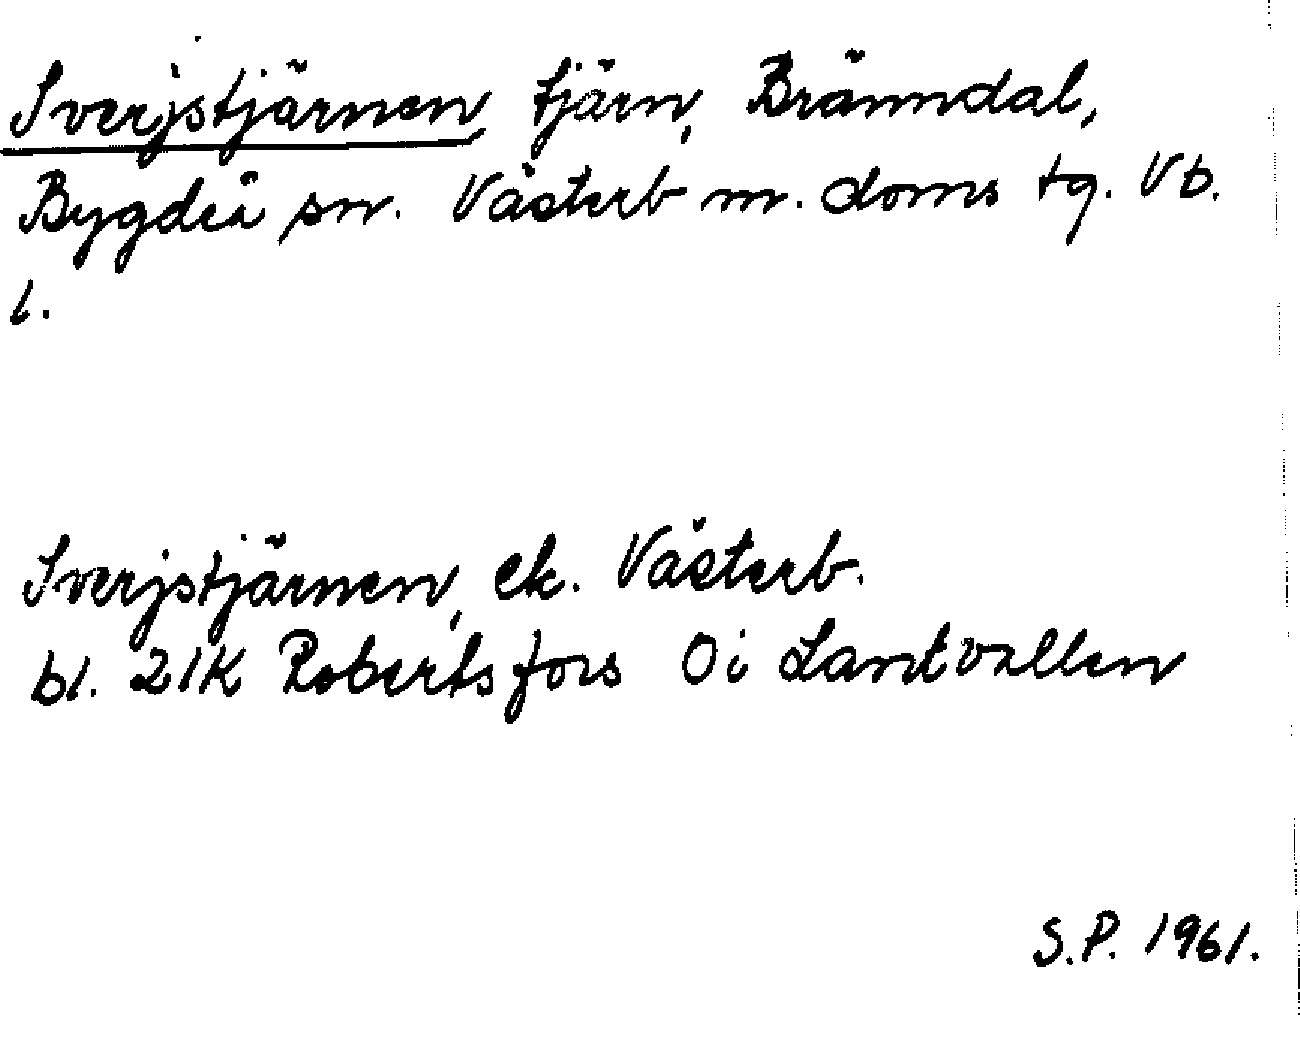 Sverjstjärnen, tjärn, Bränndal,
Bygdeå sn. Västerb m. doms tg. Vb.
l.
Sverjstjärnen, ek. Västerb.
bl. 21K Robertsfors 0i Lantvallen
S.P. 1961.